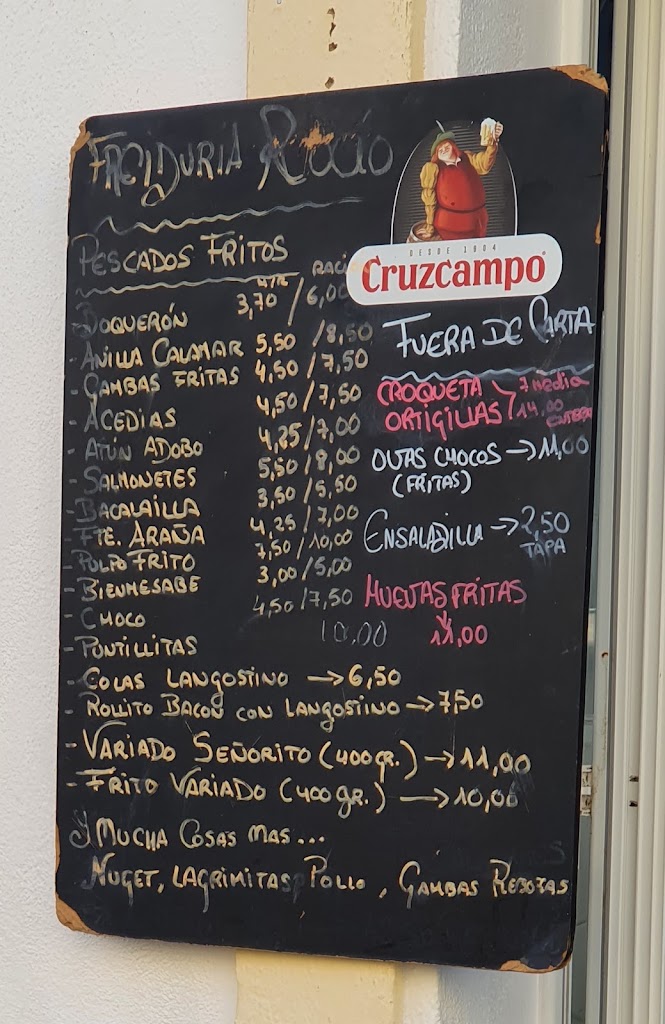 FREIDURIA Rocio
DESDE 1904
Cruzcampo
PESCADOS FRITOS
1/2R RACI
- BOQUERÓN 3,70/6,00
- ANILLA CALAMAR 5,50/8,50
- GAMBAS FRITAS 4,50/7,50
- ACEDIAS 4,50/7,50
- ATÚN ADOBO 4,25/7,00
- SALMONETES 5,50/8,00
- BACALAILLA 3,50/5,50
- FTE. ARAÑA 4,25/7,00
- PULPO FRITO 7,50/10,00
- BIENMESABE 3,00/5,00
- CHOCO 4,50/7,50
- PUNTILLITAS 10.00
- COLAS LANGOSTINO → 6,50
- ROLLITO BACON CON LANGOSTINO → 7,50
- VARIADO SEÑORITO (400gr.) → 11,00
- FRITO VARIADO (400gr.) → 10,00
Y MUCHA COSAS MAS...
NUGET, LAGRIMITAS POLLO, GAMBAS REBOZAS
FUERA DE CARTA
CROQUETA 7 media
ORTIGILLAS 14.00 ENTERA
OVAS CHOCOS → 11,00
(FRITAS)
ENSALADILLA → 2,50
TAPA
HUEVAS FRITAS
11,00